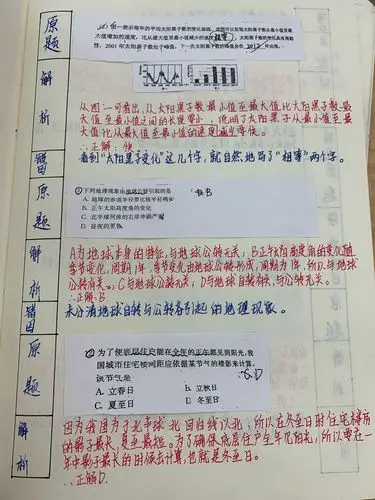 原题
图一表示每年的平均太阳黑子数的变化曲线
大值增加的速度,比从最大值至最小值减少的速度
性,2001年太阳黑子数处于峰值,下一次太阳黑子数的峰值会在2012年出现。
解析
从图一可看出,从太阳黑子数最小值至最大值比太阳黑子数最
大值至最小值之间的长度要小,说明了太阳黑子从最小值至最
大值比从最大值至最小值的速度
∴正解:快
错因
看到"太阳黑子变化"这几个字,就自然地写了"相等"两个字。
原题
①下列地理现象由地球公转引起的是
A. 地球的赤道半径要比极半径稍长
B. 正午太阳高度角的变化
C. 北半球河流的右岸冲刷严重
D. 昼夜的更替
解析
A为地球本身的特征,与地球公转无关;B正午太阳高度角的变化随
季节变化,周期1年,季节变化由地球公转形成,周期为1年,所以与地球
公转有关。C与地球公转无关;D与地球自转有关,与公转无关。
∴正解:B
错因
未分清地球自转与公转各引起的地理现象。
原题
②为了使底层住户能在全年的正午都见到阳光,我
国城市住宅楼间距应依据某节气的楼影来计算,
该节气是
A. 立春日 B. 立秋日
C. 夏至日 D. 冬至日
解析
因为我国为于北半球北回归线以北,所以在冬至日时住宅楼房
的影子最长,夏至最短。为了确保底层住户全年见阳光,所以要在一
年中影子最大的时候去计算,也就是冬至日。
∴正解D.